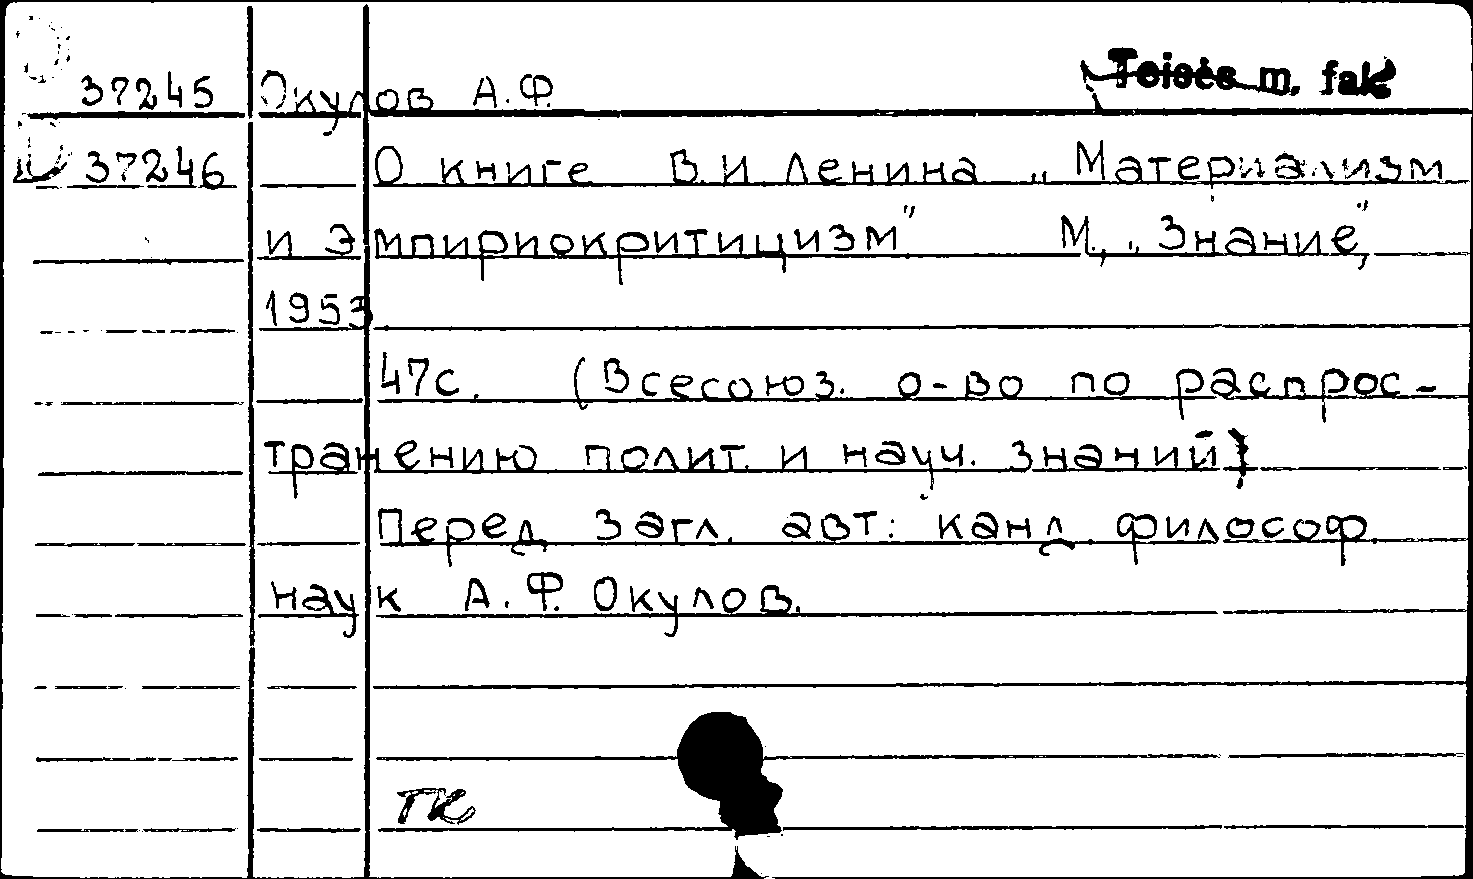 Teisės m. fak
37245 Окулов А.Ф.
37246 О книге В.И Ленина „Материализм
и эмпириокритицизм" М., „Знание",
1953.
47с. (Всесоюз. о-во по распрос-
транению полит. и науч. знаний)
Перед загл. авт: канд. философ.
наук А.Ф. Окулов.
ТК